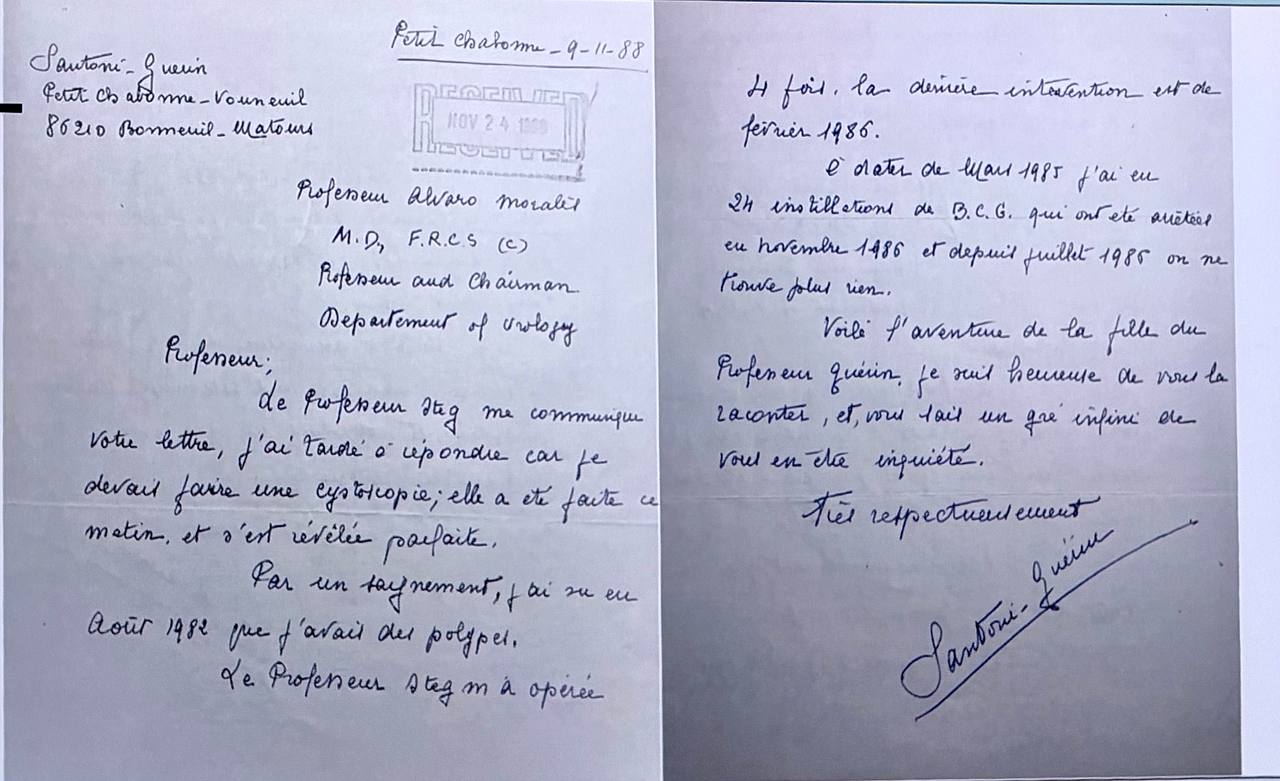 Petit Chabonne - 9-11-88
Santoni-Guérin
Petit Chabonne - Vouneuil
86210 Bonneuil-Matours
RECEIVED
NOV 24 1988
RECEIVED
Professeur Alvaro Morales
M.D., F.R.C.S (C)
Professeur and Chairman
Departement of Urology
Professeur,
Le Professeur Steg me communique
votre lettre, j'ai tardé à répondre car je
devais faire une cystoscopie; elle a été faite ce
matin, et s'est révélée parfaite.
Par un saignement, j'ai su en
Août 1982 que j'avais des polypes.
Le Professeur Steg m'a opérée
4 fois. la dernière intervention est de
février 1986.
à dater de Mars 1985 j'ai eu
24 instillations de B.C.G. qui ont été arrêtées
en novembre 1986 et depuis juillet 1986 on ne
trouve plus rien.
Voilà l'aventure de la fille du
Professeur Guérin, je suis heureuse de vous la
raconter, et, vous sais un gré infini de
vous en être inquiété.
Très respectueusement
Santoni-Guérin